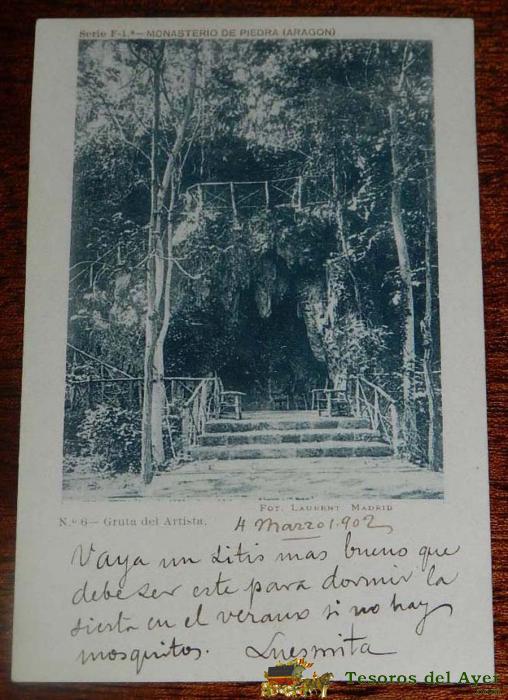 Serie F-1.ª — MONASTERIO DE PIEDRA (ARAGON)
FOT. LAURENT MADRID
N.º 6 — Gruta del Artista.
4 Marzo 1.902
Vaya un sitis mas bueno que
debe ser este para dormir la
siesta en el verano si no hay
mosquitos.
Tesoros del Ayer